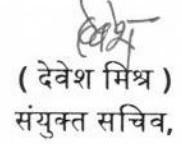 देवेश
( देवेश मिश्र )
संयुक्त सचिव,